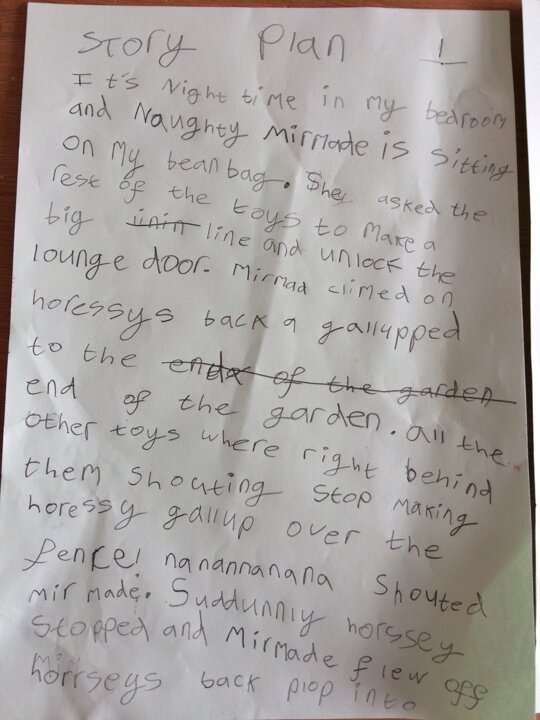 Story Plan 1
It's Night time in my bedroom
and Naughty Mirmade is sitting
on My bean bag. She asked the
rest of the toys to make a
big line and unlock the
lounge door. Mirmad climed on
horessys back a gallupped
to the endx of the garden
end of the garden. all the
other toys where right behind
them shouting stop making
horessy gallup over the
fence! nanannanana shouted
mirmade. Suddunnly horssey
stopped and Mirmade flew off
horrseys back plop into